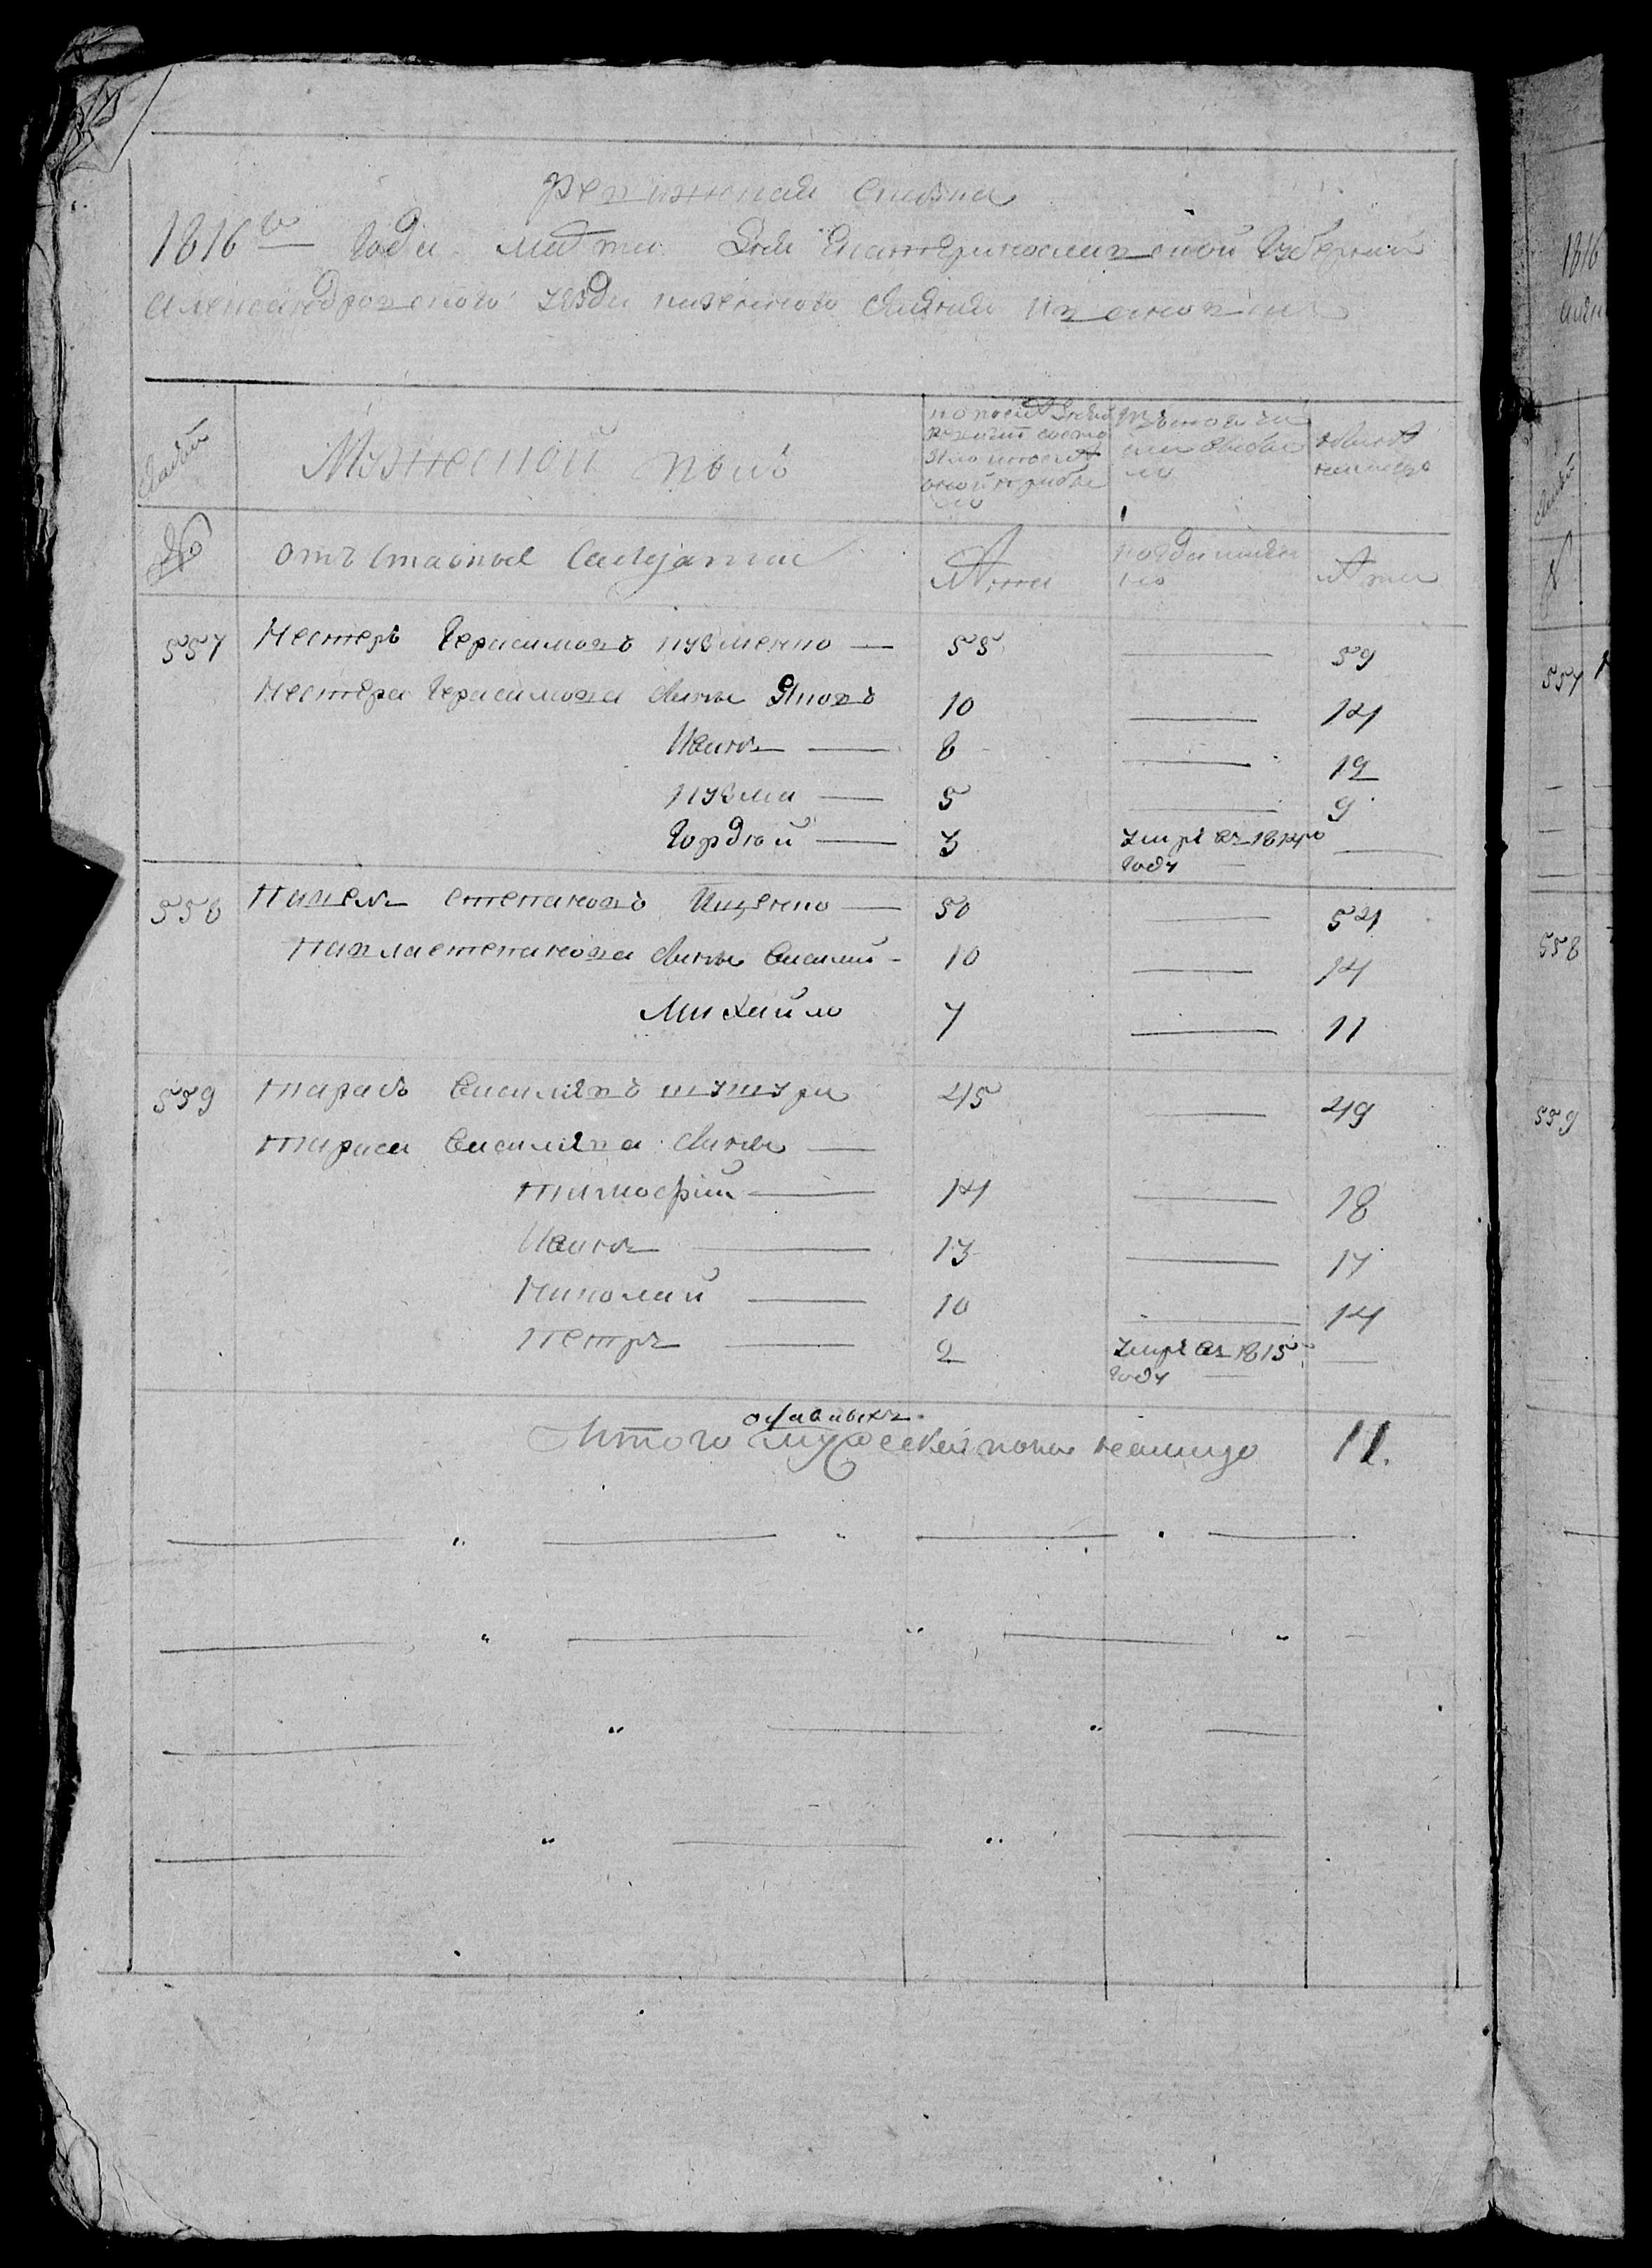 Ревижская сказка
1816го Года марта Дня Екатеринославской Губернии
Александровского уезда казенного селения Ивановки
семьи
Мужеской полъ
по последней ревизии состояло и после оной прибыло
Изъ того числа выбыло
Ныне налицо
№
отъставные Салдати
Лета
когда имянно
Лета
557 Нестеръ Герасимовъ кузменко — 55 — 59
Нестера Герасимова сыны Яковъ 10 — 14
Иванъ — 8 — 12
кузма — 5 — 9
Гордей — 3 Умре въ 1814го —
Году —
558 Павелъ степановъ Ищенко — 50 — 54
Павла степанова сыны Василий - 10 — 14
Михайло 7 — 11
559 тарасъ Василевъ шушура 45 — 49
тараса Василева сыны —
тимофий — 14 — 18
Иванъ — 13 — 17
Николай — 10 — 14
петръ — 2 Умре въ 1815 —
Году —
Итого мужеска пола налицо 11.
1816
557
558
559